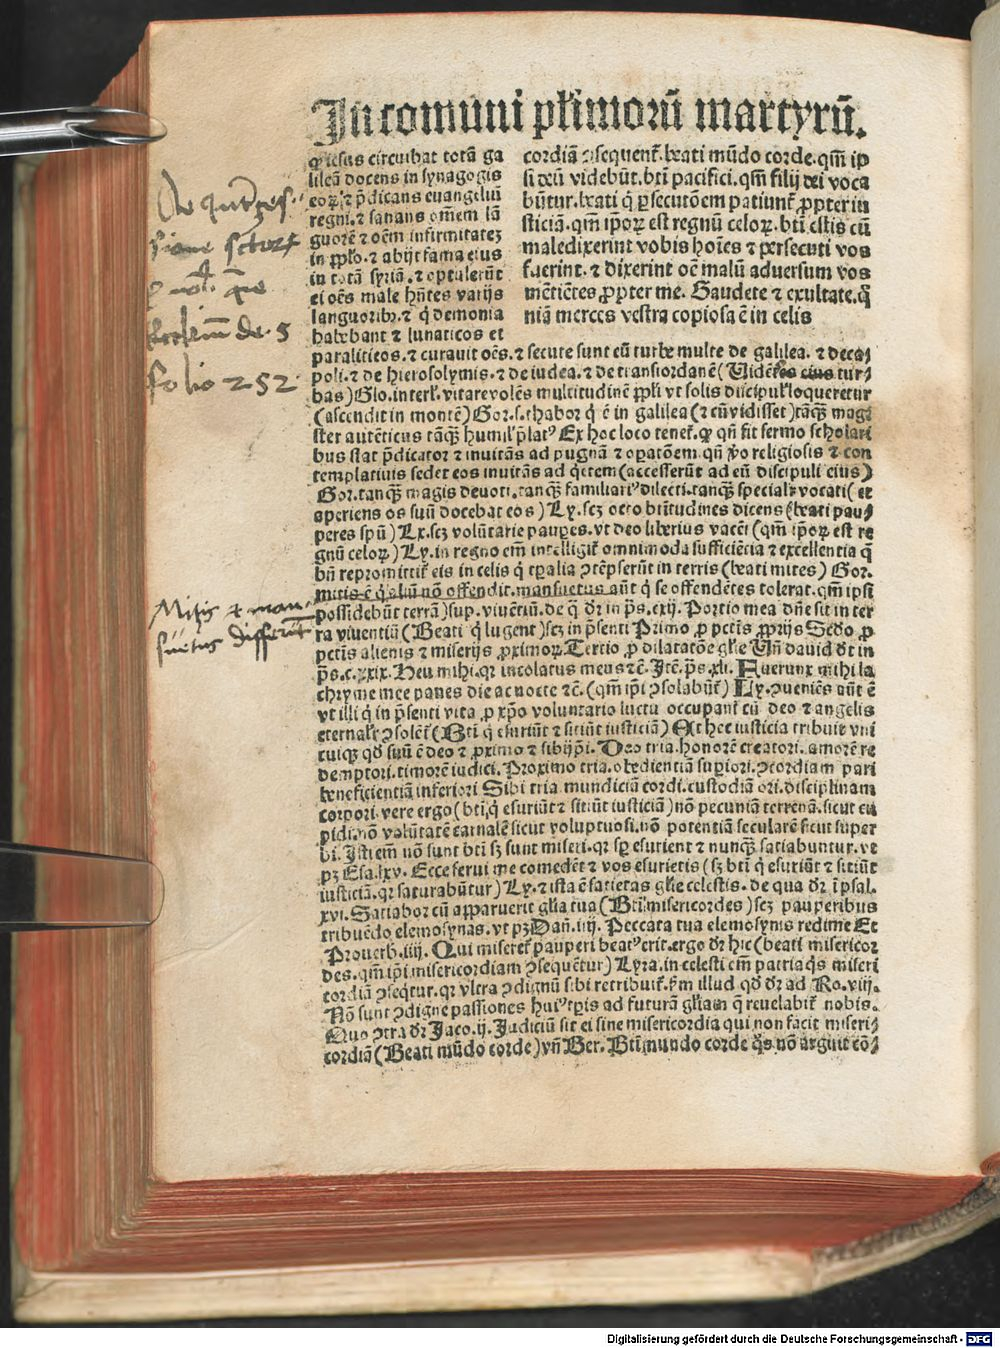 In comuni pľimorū martyrū.
q̄ iesus circuibat totā ga
lileā docens in synagogis
eoꝝ. ⁊ p̄dicans euangeliū
regni. ⁊ sanans om̄em lā
guorē ⁊ oēm infirmitateꝫ
in ꝓpľo. ⁊ abijt fama eius
in totā syriā. ⁊ optulerūt
ei oēs male hn̄tes varijs
languoribꝫ. ⁊ q̇ demonia
habebant ⁊ lunaticos et
cordiā ɔsequent̄. beati mūdo corde. qm̄ ip
si deū videbūt. bt̄i pacifici. qm̄ filij dei voca
būtur. beati q̇ ꝑsecutōem patiunt̄ ꝓpter iu
sticiā. qm̄ ip̄oꝝ est regnū celoꝝ. bt̄i estis cū
maledixerint vobis hoīes ⁊ persecuti vos
fuerint. ⁊ dixerint oē malū aduersum vos
mētiētes ꝓpter me. Gaudete ⁊ exultate. qm̄
niā merces vestra copiosa ē in celis
paraliticos. ⁊ curauit oēs. ⁊ secute sunt eū turbe multe de galilea. ⁊ deca⸗
poli. ⁊ de hierosolymis. ⁊ de iudea. ⁊ de transiordanē (Uidēs eius tur⸗
bas) Glo. interľ. vitare volēs multitudinē ꝓpľi vt solis discipuľ loqueretur
(ascendit in montē) Gor. s. thabor q̇ ē in galilea (⁊ cū vidisset) tāqꝫ magi
ster autēticus tāqꝫ humiľ p̄latꝰ Ex hoc loco tenet̄. ꝙ qn̄ fit sermo scholari
bus stat p̄dicator ⁊ inuitās ad pugnā ⁊ oꝑatōem qn̄ ꝟo religiosis ⁊ con
templatiuis sedet eos inuitās ad q̇etem (accesserūt ad eū discipuli eius)
Gor. tanqꝫ magis deuoti. tanqꝫ familiariꝰ dilecti. tanqꝫ specialꝛ vocati (et
aperiens os suū docebat eos) Ly. scꝫ octo btītudines dicens (beati pau⸗
peres spū) Lx. scꝫ volūtarie pauꝑes. vt deo liberius vacēt (qm̄ ip̄oꝝ est re
gnū celoꝝ) Ly. in regno em̄ intelligit̄ omnimoda sufficiētia ⁊ excellentia q̄
bn̄ repromittit̄ eis in celis q̇ tꝑalia ɔtēpserūt in terris (beati mites) Gor.
mitis ē q̇ aliū nō offendit. mansuetus aūt q̇ se offendētes tolerat. qm̄ ipsi
possidebūt terrā) sup. viuētiū. de q̄ dr̄ in ps̄. cxlj. Portio mea dn̄e sit in ter
ra viuentiū (Beati q̇ lugent) scꝫ in p̄senti Primo ꝓ pctīs ꝓprijs Scd̄o ꝓ
pctīs alienis ⁊ miserijs ꝓximoꝝ. Tertio ꝓ dilatatōe gľie Un̄ dauid dt̄ in
ps̄. c. xxix. Heu mihi. qꝛ incolatus meus ⁊c̄. Itē. ps̄. xli. Fuerunt mihi la
chryme mee panes die ac nocte ⁊c̄. (qm̄ ip̄i ɔsolabūt̄) Ly. ɔueniēs aūt ē
vt illi q̇ in p̄senti vita ꝓ xp̄o voluntario luctu occupant̄ cū deo ⁊ angelis
eternalꝛ ɔsolēt̄ (Bt̄i q̇ esuriūt ⁊ sitiūt iusticiā) At hec iusticia tribuit vni
cuiqꝫ qd̄ suū ē deo ⁊ ꝓximo ⁊ sibijp̄i. Deo tria. honorē creatori. amorē re
demptori. timorē iudici. Proximo tria. obedientiā suꝑiori. ɔcordiam pari
beneficientiā inferiori Sibi tria. mundiciā cordi. custodiā ori. disciplinam
corpori. vere ergo (bt̄i q̇ esuriūt ⁊ sitiūt iusticiā) nō pecuniā terrenā. sicut cu
pidi. nō volūtatē carnalē sicut voluptuosi. nō potentiā secularē sicut super
bi. Isti em̄ nō sunt bt̄i sꝫ sunt miseri. qꝛ sꝑ esurient ⁊ nunqꝫ satiabuntur. vt
pꝫ Esa. lxv. Ecce serui me comedēt ⁊ vos esurietis (sꝫ bt̄i q̇ esuriūt ⁊ sitiūt
iusticiā. qꝛ saturabūtur) Ly. ⁊ ista ē satietas gľie celestis. de qua dr̄ ī psal.
xvi. Satiabor cū apparuerit gľia tua (Bt̄i misericordes) scꝫ pauperibus
tribuēdo elemosynas. vt pꝫ Dañ. iiij. Peccata tua elemosynis redime Et
Prouerb. iiij. Qui miseret̄ pauperi beatꝰ erit. ergo dr̄ hic (beati misericor
des. qm̄ ip̄i misericordiam ɔsequētur) Lyra. in celesti em̄ patria q̇s miseri
cordiā ɔseq̄tur. qꝛ vltra ɔdignū sibi retribuit̄. ẜm illud qd̄ dr̄ ad Ro. viij.
Nō sunt ɔdigne passiones huiꝰ tp̄is ad futurā gľiam q̄ reuelabit̄ nobis.
Quo ɔtra dr̄ Jaco. ij. Judiciū sit ei sine misericordia qui non facit miseri⸗
cordiā (Beati mūdo corde) vn̄ Ber. Bt̄i mundo corde q̇s nō arguit cō⸗
folio 252
Mitis et man⸗
suetus differūt
Digitalisierung gefördert durch die Deutsche Forschungsgemeinschaft - DFG